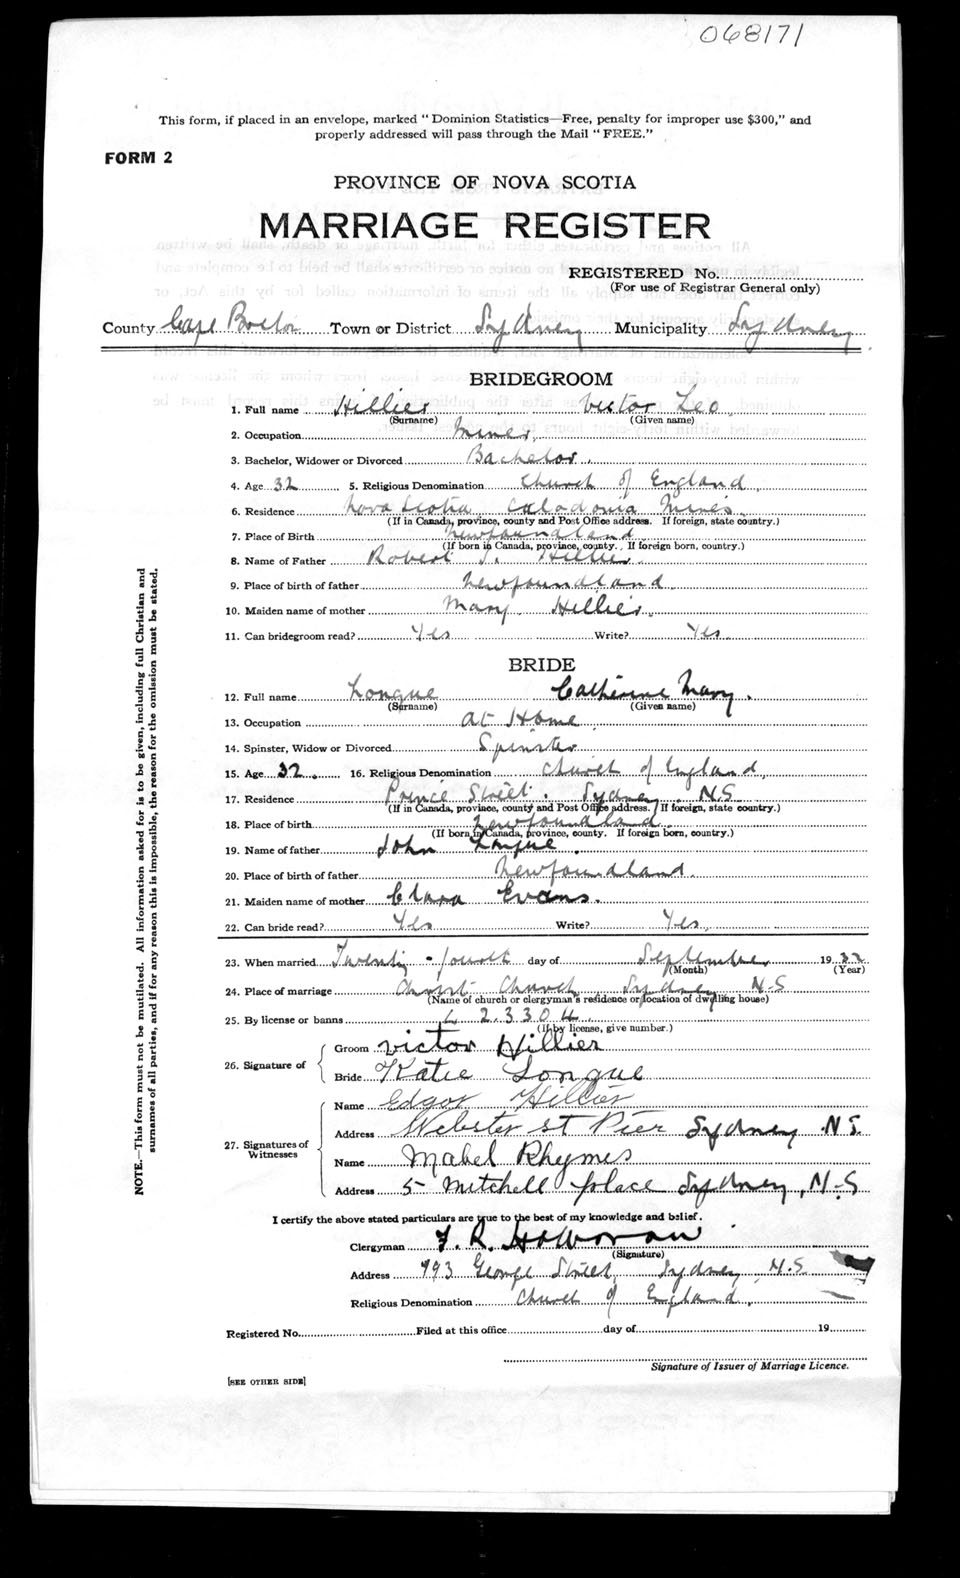 068171
This form, if placed in an envelope, marked "Dominion Statistics—Free, penalty for improper use $300," and
properly addressed will pass through the Mail "FREE."
FORM 2
PROVINCE OF NOVA SCOTIA
MARRIAGE REGISTER
REGISTERED No.
(For use of Registrar General only)
County Cape Breton Town or District Sydney Municipality Sydney
BRIDEGROOM
1. Full name Hillier Victor Leo
(Surname) (Given name)
2. Occupation Miner
3. Bachelor, Widower or Divorced Bachelor.
4. Age 32 5. Religious Denomination Church of England
6. Residence Nova Scotia Caledonia Mines
(If in Canada, province, county and Post Office address. If foreign, state country.)
7. Place of Birth Newfoundland
(If born in Canada, province, county. If foreign born, country.)
8. Name of Father Robert Hillier
9. Place of birth of father Newfoundland
10. Maiden name of mother Mary Hillier
11. Can bridegroom read? Yes Write? Yes
BRIDE
12. Full name Longue Catherine Mary.
(Surname) (Given name)
13. Occupation at Home
14. Spinster, Widow or Divorced Spinster
15. Age 32. 16. Religious Denomination Church of England,
17. Residence Prince Street. Sydney N.S
(If in Canada, province, county and Post Office address. If foreign, state country.)
18. Place of birth Newfoundland
(If born in Canada, province, county. If foreign born, country.)
19. Name of father John Longue.
20. Place of birth of father Newfoundland.
21. Maiden name of mother Clara Evans.
22. Can bride read? Yes Write? Yes
23. When married Twenty-fourth day of September 1932
(Month) (Year)
24. Place of marriage Christ Church Sydney N.S
(Name of church or clergyman's residence or location of dwelling house)
25. By license or banns L 23304
(If by license, give number.)
26. Signature of Groom Victor Hillier
Bride Katie Longue
27. Signatures of Witnesses
Name Edgar Hillier
Address Webster st Pier Sydney N.S.
Name Mabel Rhymes
Address 5 Mitchell place Sydney, N.S
I certify the above stated particulars are true to the best of my knowledge and belief.
Clergyman
(Signature)
Address 793 George Street, Sydney, N.S
Religious Denomination Church of England,
Registered No. Filed at this office day of 19
Signature of Issuer of Marriage Licence.
[SEE OTHER SIDE]
NOTE.—This form must not be mutilated. All information asked for is to be given, including full Christian and
surnames of all parties, and if for any reason this is impossible, the reason for the omission must be stated.